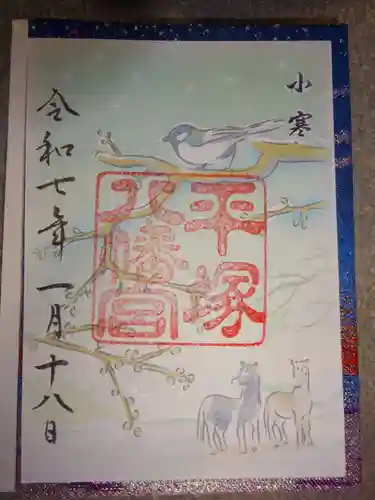 小寒
平塚
八幡宮
令和七年 一月十八日